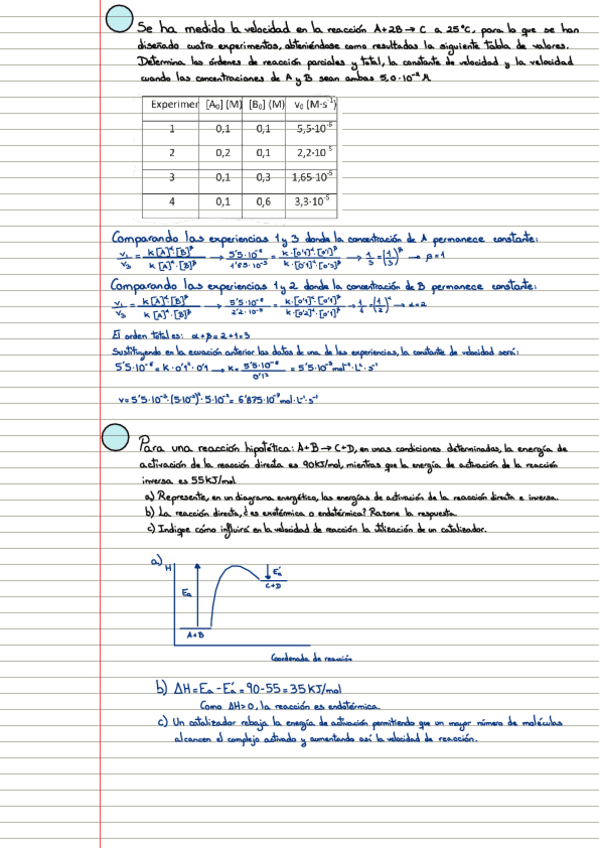 Se ha medido la velocidad en la reacción A+2B → C a 25°C, para lo que se han
diseñado cuatro experimentos, obteniéndose como resultados la siguiente tabla de valores.
Determina los órdenes de reacción parciales y total, la constante de velocidad y la velocidad
cuando las concentraciones de A y B sean ambas 5,0·10⁻² M.
Experimer [A₀] (M) [B₀] (M) v₀ (M·s⁻¹)
1 0,1 0,1 5,5·10⁻⁶
2 0,2 0,1 2,2·10⁻⁵
3 0,1 0,3 1,65·10⁻⁵
4 0,1 0,6 3,3·10⁻⁵
Comparando las experiencias 1 y 3 donde la concentración de A permanece constante:
v₁/v₃ = k[A]^α·[B]^β / k[A]^α·[B]^β → 5'5·10⁻⁶ / 1'65·10⁻⁵ = k·[0'1]^α·[0'1]^β / k·[0'1]^α·[0'3]^β → 1/3 = (1/3)^β → β=1
Comparando las experiencias 1 y 2 donde la concentración de B permanece constante:
v₁/v₃ = k[A]^α·[B]^β / k[A]^α·[B]^β → 5'5·10⁻⁶ / 2'2·10⁻⁵ = k·[0'1]^α·[0'1]^β / k·[0'2]^α·[0'1]^β → 1/4 = (1/2)^α → α=2
El orden total es: α+β=2+1=3
Sustituyendo en la ecuación anterior los datos de una de las experiencias, la constante de velocidad será:
5'5·10⁻⁶ = K·0'1²·0'1 → K = 5'5·10⁻⁶ / 0'1³ = 5'5·10⁻³ mol⁻²·L²·s⁻¹
v=5'5·10⁻³·(5·10⁻²)²·5·10⁻²= 6'875·10⁻⁷ mol·L⁻¹·s⁻¹
Para una reacción hipotética: A+B → C+D, en unas condiciones determinadas, la energía de
activación de la reacción directa es 90KJ/mol, mientras que la energía de activación de la reacción
inversa es 55KJ/mol
a) Represente, en un diagrama energético, las energías de activación de la reacción directa e inversa.
b) La reacción directa, ¿es exotérmica o endotérmica? Razone la respuesta.
c) Indique cómo influirá en la velocidad de reacción la utilización de un catalizador.
a)
H
Eₐ
Eₐ'
C+D
A+B
Coordenada de reacción
b) ΔH=Eₐ-Eₐ'=90-55=35KJ/mol
Como ΔH>0, la reacción es endotérmica
c) Un catalizador rebaja la energía de activación permitiendo que un mayor número de moléculas
alcancen el complejo activado y aumentando así la velocidad de reacción.